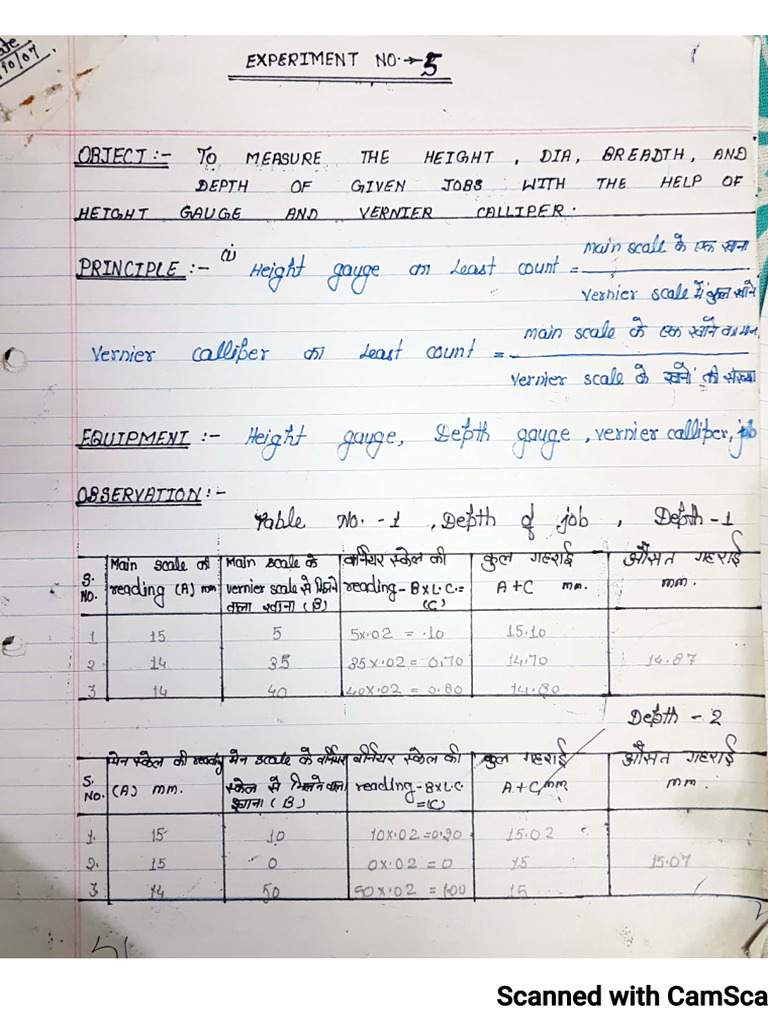 ate
90/07
EXPERIMENT NO.→5
OBJECT :- TO MEASURE THE HEIGHT, DIA, BREADTH, AND
DEPTH OF GIVEN JOBS WITH THE HELP OF
HEIGHT GAUGE AND VERNIER CALLIPER.
PRINCIPLE :- (i) Height gauge का Least count = main scale के एक खाना / vernier scale में कुल खाने
Vernier calliper का Least count = main scale के एक खाने का मान / vernier scale के खानों की संख्या
EQUIPMENT :- Height gauge, Depth gauge, vernier calliper, job
OBSERVATION :-
Table No. -1, Depth of job, Depth -1
S. NO. Main scale की reading (A) mm Main scale के vernier scale से मिलने वाला खाना (B) वर्नियर स्केल की reading - B×L.C.= (C) कुल गहराई A+C mm. औसत गहराई mm.
1 15 5 5×.02 = .10 15.10
2 14 35 35×.02 = 0.70 14.70 14.87
3 14 40 40×.02 = 0.80 14.80
Depth - 2
S. NO. मेन स्केल की reading (A) mm. मेन scale के वर्नियर स्केल से मिलने वाला खाना (B) वर्नियर स्केल की reading - B×L.C. =(C) कुल गहराई A+C mm औसत गहराई mm.
1. 15 10 10×.02=0.20 15.02
2. 15 0 0×.02 = 0 15 15.07
3 14 50 50×.02 = 100 15
Scanned with CamSca